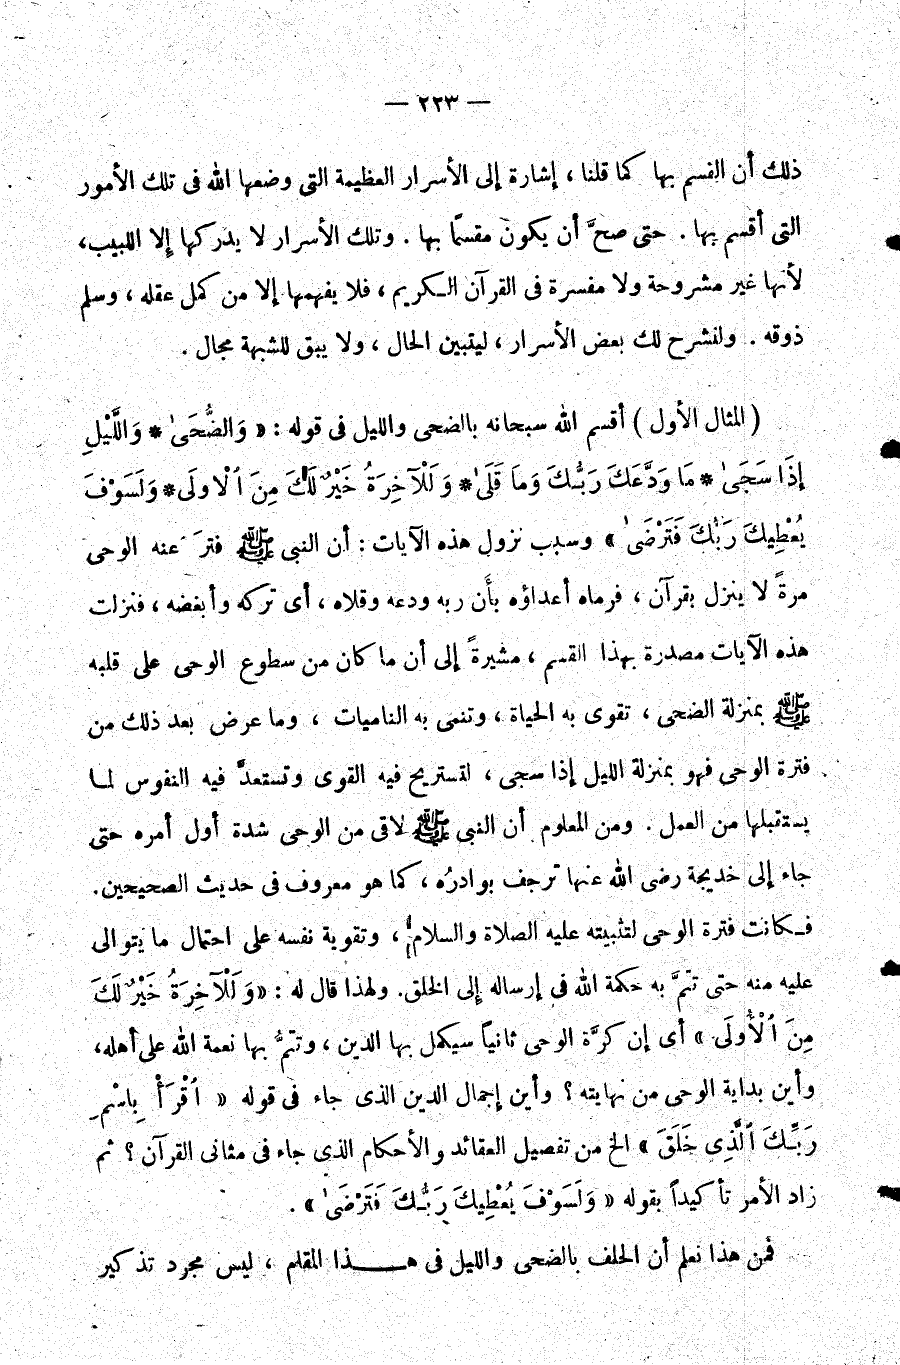 — ٢٢٣ —
ذلك أن القسم بها كما قلنا ، إشارة إلى الأسرار العظيمة التى وضعها الله فى تلك الأمور
التى أقسم بها . حتى صحَّ أن يكون مقسمًا بها . وتلك الأسرار لا يدركها إلا اللبيب،
لأنها غير مشروحة ولا مفسرة فى القرآن الـكريم ، فلا يفهمها إلا من كمل عقله ، وسلم
ذوقه . ولنشرح لك بعض الأسرار ، ليتبين الحال ، ولا يبق للشبهة مجال .
( المثال الأول ) أقسم الله سبحانه بالضحى والليل فى قوله : « وَالضُّحَىٰ * وَاللَّيْلِ
إِذَا سَجَىٰ * مَا وَدَّعَكَ رَبُّكَ وَمَا قَلَىٰ * وَلَلْآخِرَةُ خَيْرٌ لَكَ مِنَ ٱلْاولَى * وَلَسَوْفَ
يُعْطِيكَ رَبُّكَ فَتَرْضَىٰ » وسبب نزول هذه الآيات : أن النبى ﷺ فترَ عنه الوحى
مرةً لا ينزل بقرآن ، فرماه أعداؤه بأن ربه ودعه وقلاه ، أى تركه وأبغضه ، فنزلت
هذه الآيات مصدرة بهذا القسم ، مشيرةً إلى أن ما كان من سطوع الوحى على قلبه
ﷺ بمنزلة الضحى ، تقوى به الحياة ، وتنمى به الناميات ، وما عرض بعد ذلك من
فترة الوحى فهو بمنزلة الليل إذا سجى ، لتستريح فيه القوى وتستعدَّ فيه النفوس لمـا
يستقبلها من العمل . ومن المعلوم أن النبى ﷺ لاقى من الوحى شدة أول أمره حتى
جاء إلى خديجة رضى الله عنها ترجف بوادرُه ، كما هو معروف فى حديث الصحيحين.
فـكانت فترة الوحى لتثبيته عليه الصلاة والسلام ، وتقوية نفسه على احتمال ما يتوالى
عليه منه حتى تتمَّ به حكمة الله فى إرساله إلى الخلق. ولهذا قال له : « وَلَلْآخِرَةُ خَيْرٌ لَكَ
مِنَ ٱلْأُولَى » أى إن كرَّة الوحى ثانياً سيكمل بها الدين ، وتتمُّ بها نعمة الله على أهله،
وأين بداية الوحى من نهايته ؟ وأين إجمال الدين الذى جاء فى قوله « ٱقْرَأْ بِاسْمِ
رَبِّـكَ ٱلَّذِى خَلَقَ » الخ من تفصيل العقائد والأحكام الذى جاء فى مثانى القرآن ؟ ثم
زاد الأمر تأكيداً بقوله « وَلَسَوْفَ يُعْطِيكَ رَبُّـكَ فَتَرْضَىٰ » .
فمن هذا نعلم أن الحلف بالضحى والليل فى هـــذا المقام ، ليس مجرد تذكير